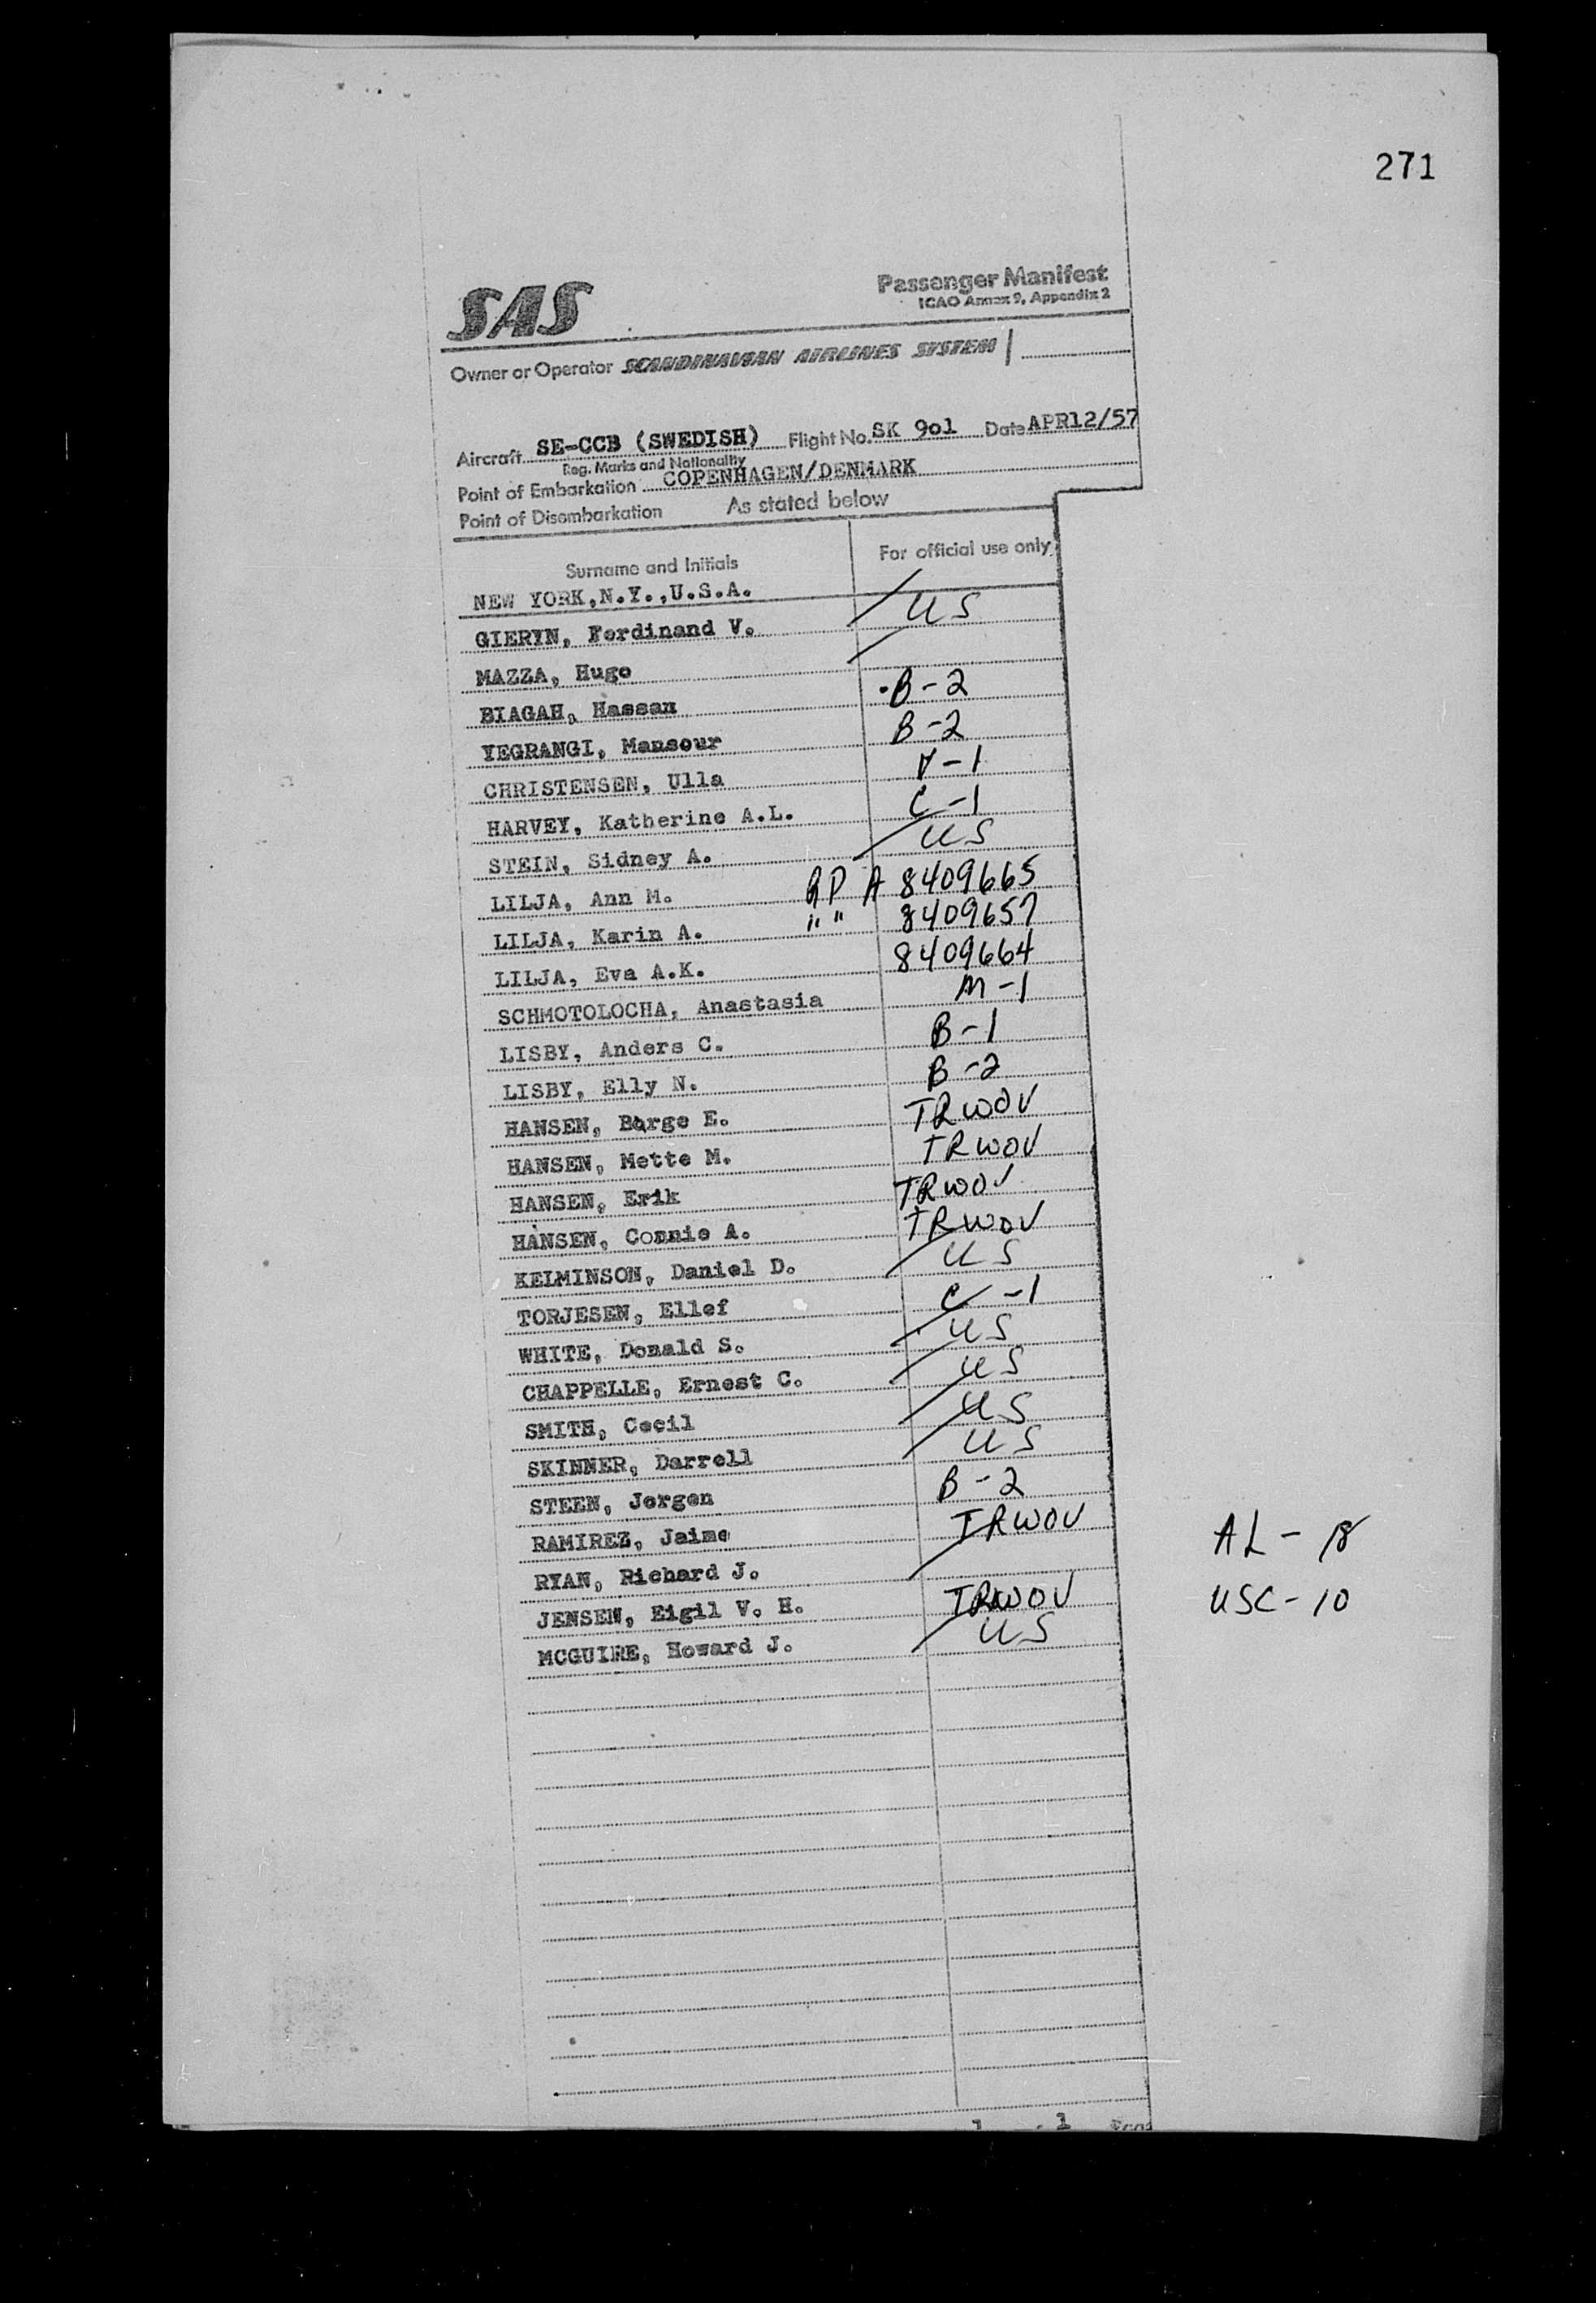 271
SAS Passenger Manifest
ICAO Annex 9, Appendix 2
Owner or Operator SCANDINAVIAN AIRLINES SYSTEM
Aircraft SE-CCB (SWEDISH) Flight No. SK 9o1 Date APR12/57
Reg. Marks and Nationality
Point of Embarkation COPENHAGEN/DENMARK
Point of Disembarkation As stated below
Surname and Initials For official use only
NEW YORK,N.Y.,U.S.A.
GIERYN, Ferdinand V. US
MAZZA, Hugo
BIAGAH, Hassan B-2
YEGRANGI, Mansour B-2
CHRISTENSEN, Ulla -1
HARVEY, Katherine A.L. C-1
STEIN, Sidney A. US
LILJA, Ann M. RP A 8409665
LILJA, Karin A. " " 8409657
LILJA, Eva A.K. 8409664
SCHMOTOLOCHA, Anastasia M-1
LISBY, Anders C. B-1
LISBY, Elly N. B-2
HANSEN, Børge E. TRWOV
HANSEN, Mette M. TRWOV
HANSEN, Erik TRWOV
HANSEN, Connie A. TRWOV
KELMINSON, Daniel D. US
TORJESEN, Ellef C-1
WHITE, Donald S. US
CHAPPELLE, Ernest C. US
SMITH, Cecil US
SKINNER, Darrell US
STEEN, Jorgen B-2
RAMIREZ, Jaime TRWOV AL - 18
RYAN, Richard J.
JENSEN, Eigil V. H. TRWOV USC-10
MCGUIRE, Howard J. US